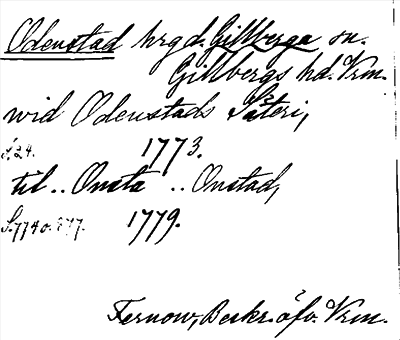 Odenstad hrgd. Gillberga sn.
Gillbergs hd. Vrm.
wid Odenstads Säteri,
S. 24. 1773.
til .. Onsta .. Onstad,
S. 774 o. 777. 1779.
Fernow, Beskr. öfv. Vrm.